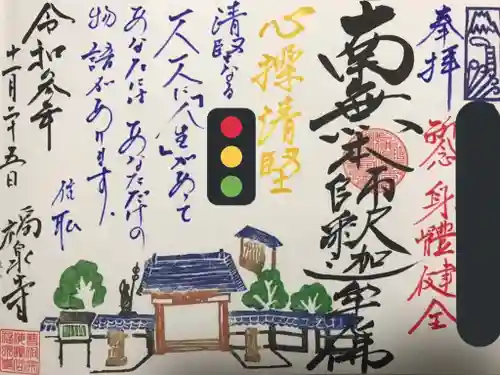 奉拝
祈念 身體健全
南無本師釈迦牟尼佛
心操清堅
清堅なる
一人一人に「人生」があって
あなたには あなただけの
物語があります。
住職
令和参年
十一月二十五日
福泉寺